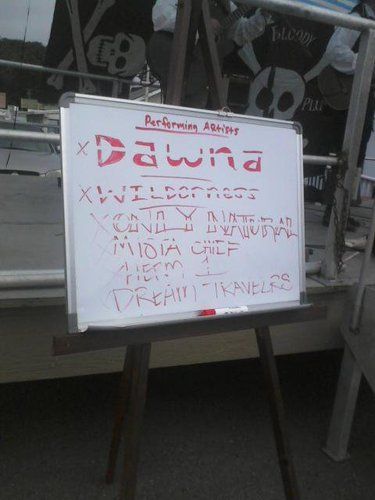 Performing Artists
x Dawna
x WILDERNESS
x ONLY NATURAL
MIDIA CHIEF
HERM 1
DREAM TRAVELRS
BLOODY